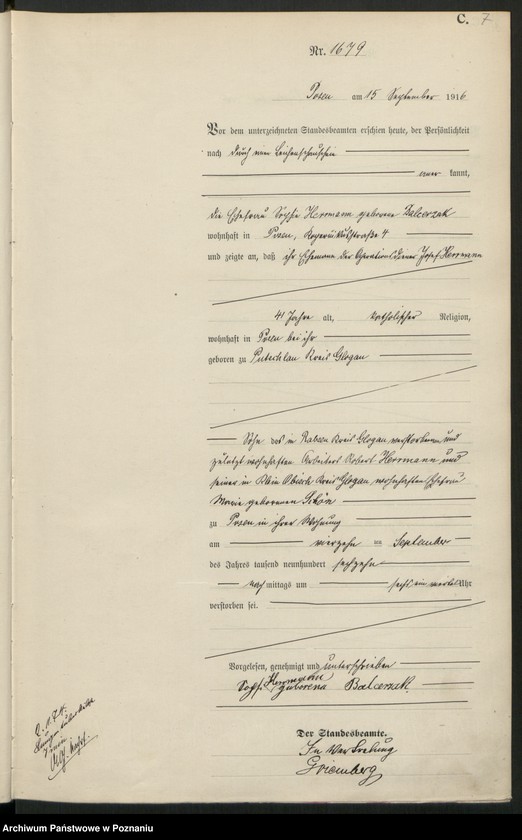 C. 7
Nr. 1679
Posen am 15 September 1916
Vor dem unterzeichneten Standesbeamten erschien heute, der Persönlichkeit
nach durch einen Leichenschauschein
kannt,
die Ehefrau Sophie Herrmann geborene Balcerzak
wohnhaft in Posen, 4
und zeigte an, daß ihr Ehemann der Operationsdiener Josef Herrmann
41 Jahre alt, katholischer Religion,
wohnhaft in Posen bei ihr
geboren zu Putschlau Kreis Glogau
Sohn des in Rabsen Kreis Glogau verstorbenen und
zuletzt wohnhaften Arbeiters Robert Herrmann und
seiner in Klein Kreis Glogau wohnhaften Ehefrau
Marie geborenen Schön
zu Posen in ihrer Wohnung
am vierzehn = September
des Jahres tausend neunhundert sechzehn
nachmittags um sechs ein viertel Uhr
verstorben sei.
Vorgelesen, genehmigt und unterschrieben
Sophie Herrmann
geborena Balcerzak
Der Standesbeamte.
In Vertretung
Archiwum Państwowe w Poznaniu